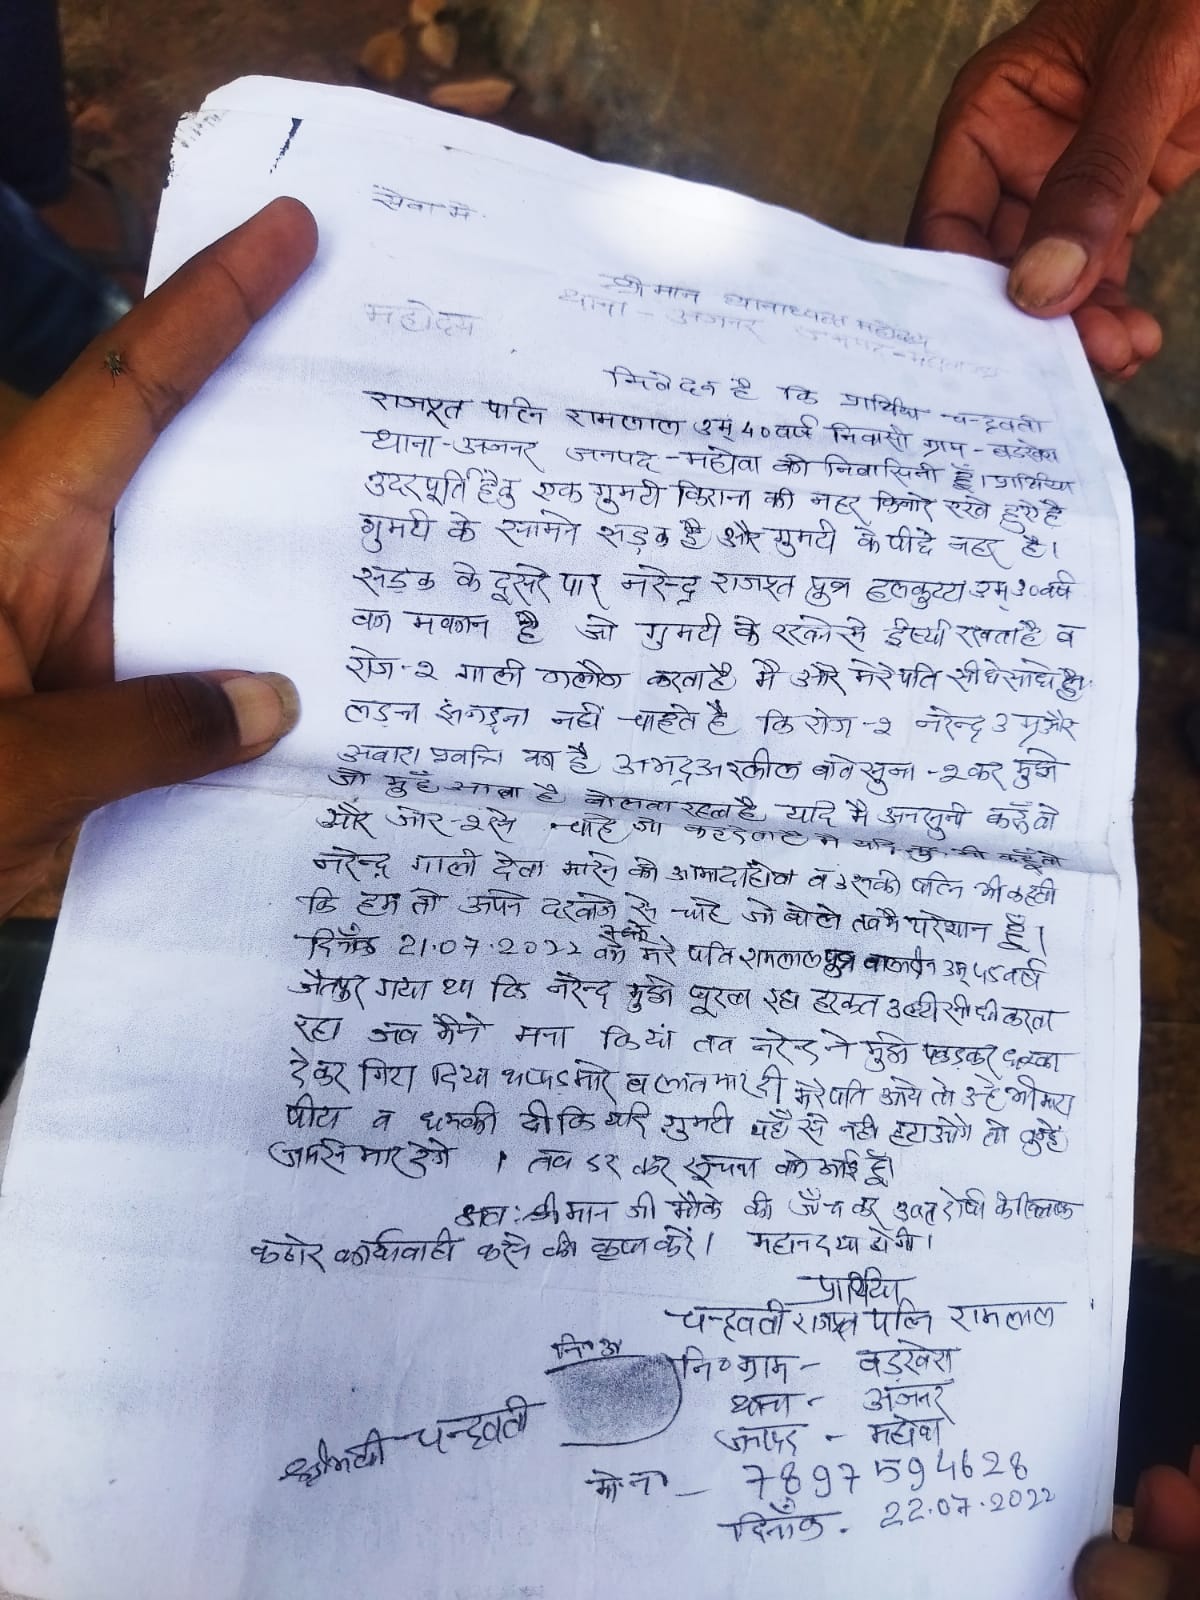 सेवा में
श्रीमान थानाध्यक्ष महोदय
थाना - अजनर जनपद - महोबा
महोदय
निवेदन है कि प्रार्थिया चन्द्रवती
राजपूत पत्नि रामलाल उम्र 40 वर्ष निवासी ग्राम - बडखेरा
थाना - अजनर जनपद - महोवा की निवासिनी हूँ। प्रार्थिया
उदरपूर्ति हेतु एक गुमटी किराना की नहर किनारे रखे हुये है
गुमटी के सामने सड़क है और गुमटी के पीछे नहर है।
सड़क के दूसरे पार नरेन्द्र राजपूत पुत्र हलकुट्टा उम्र 30 वर्ष
का मकान है जो गुमटी के रखने से ईर्ष्या रखता है व
रोज-२ गाली गलौज करता है मै और मेरे पति सीधे साधे है
लड़ना झगड़ना नहीं चाहते है कि रोज-२ नरेन्द्र उग्र और
अवारा प्रवत्ति का है अभद्र अश्लील बाते सुना-२ कर मुझे
जो मुँह आता है बोलता रहता है यदि मै अनसुनी करूँ तो
और जोर-२ से चाहे जो
नरेन्द्र गाली देता मारने को आमादा होता व उसकी पत्नि भी कहती
कि हम तो अपने दरवाजे से चाहे जो बोले तब मै परेशान हूँ।
दिनाँक 21.07.2022 को मेरे पति रामलाल पुत्र उम्र 45 वर्ष
जैतपुर गया था कि नरेन्द्र मुझे घूरता रहा हरकत उल्टी सीधी करता
रहा जब मैने मना किया तब नरेन्द्र ने मुझे पकड़कर धक्का
देकर गिरा दिया थप्पड़ मारे व लात मार दी मेरे पति आये तो उन्हे भी मारा
पीटा व धमकी दी कि यदि गुमटी यहाँ से नही हटाओगे तो तुम्हे
जान से मार देगे । तब डर कर सूचना को आई हूँ।
अतः श्रीमान जी मौके की जाँच कर उक्त दोषी के खिलाफ
कठोर कार्यवाही करने की कृपा करें। महान दया होगी।
प्रार्थिया
चन्द्रवती राजपूत पत्नि रामलाल
नि० ग्राम - बड़खेरा
थाना - अजनर
जनपद - महोबा
नि० अ
श्रीमती चन्द्रवती
मो. न० - 7897594628
दिनाँक. 22.07.2022